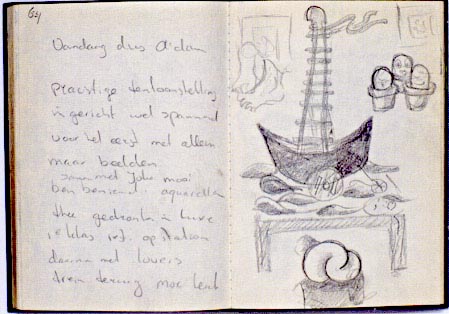 64
Vandaag dus A'dam
prachtige tentoonstelling
ingericht wel spannend
voor het eerst met alleen
maar beelden
samen met John mooi
ben benieuwd aquarellen
thee gedronken in luxe
1e klas op station
daarna met
trein terug moe